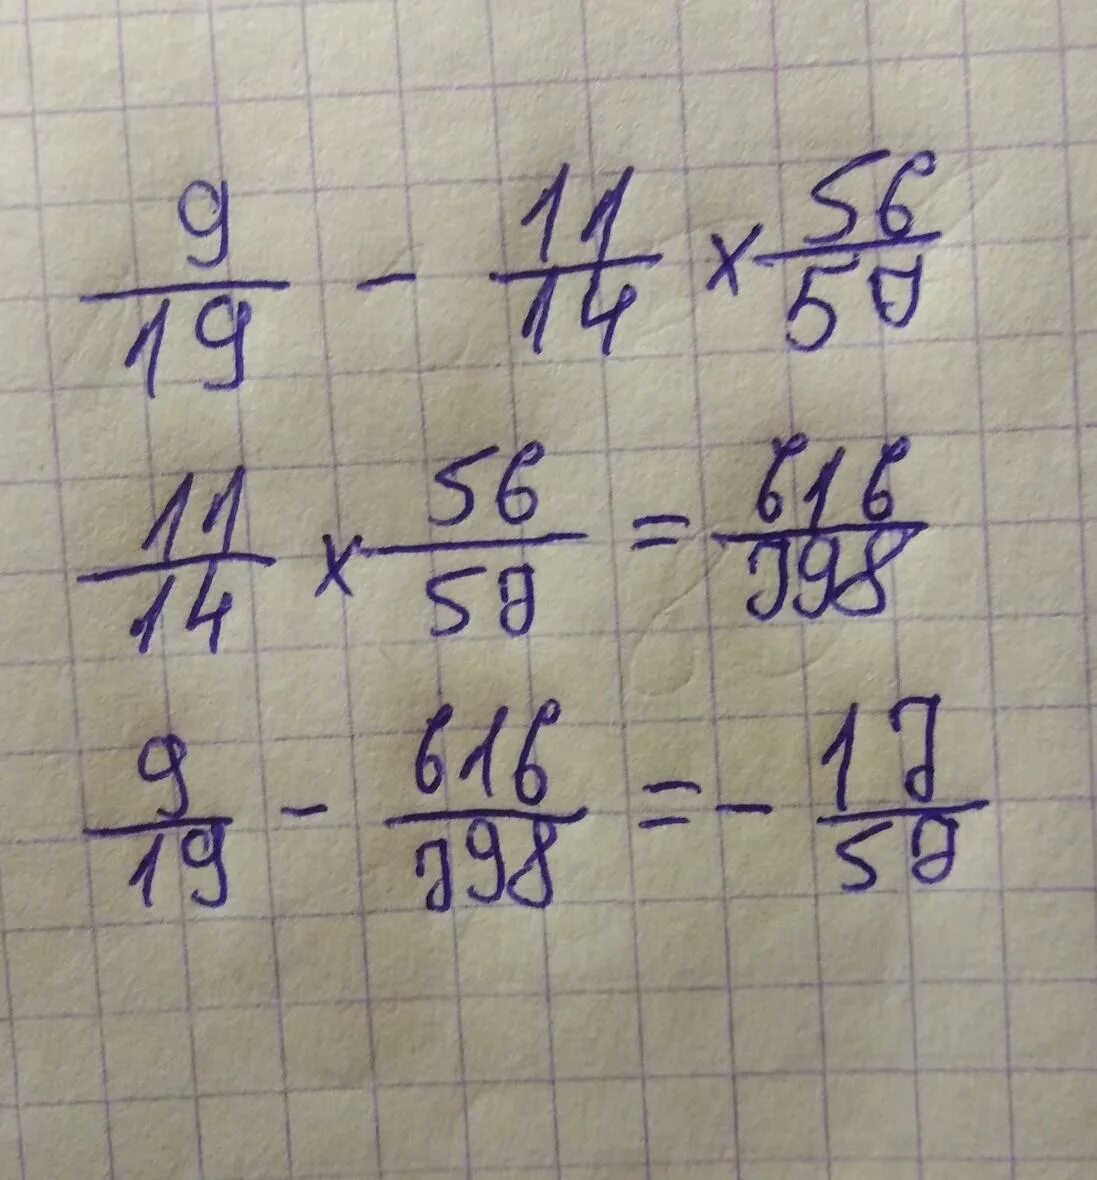 9/19 - 11/14 × 56/57
11/14 × 56/57 = 616/798
9/19 - 616/798 = - 17/57